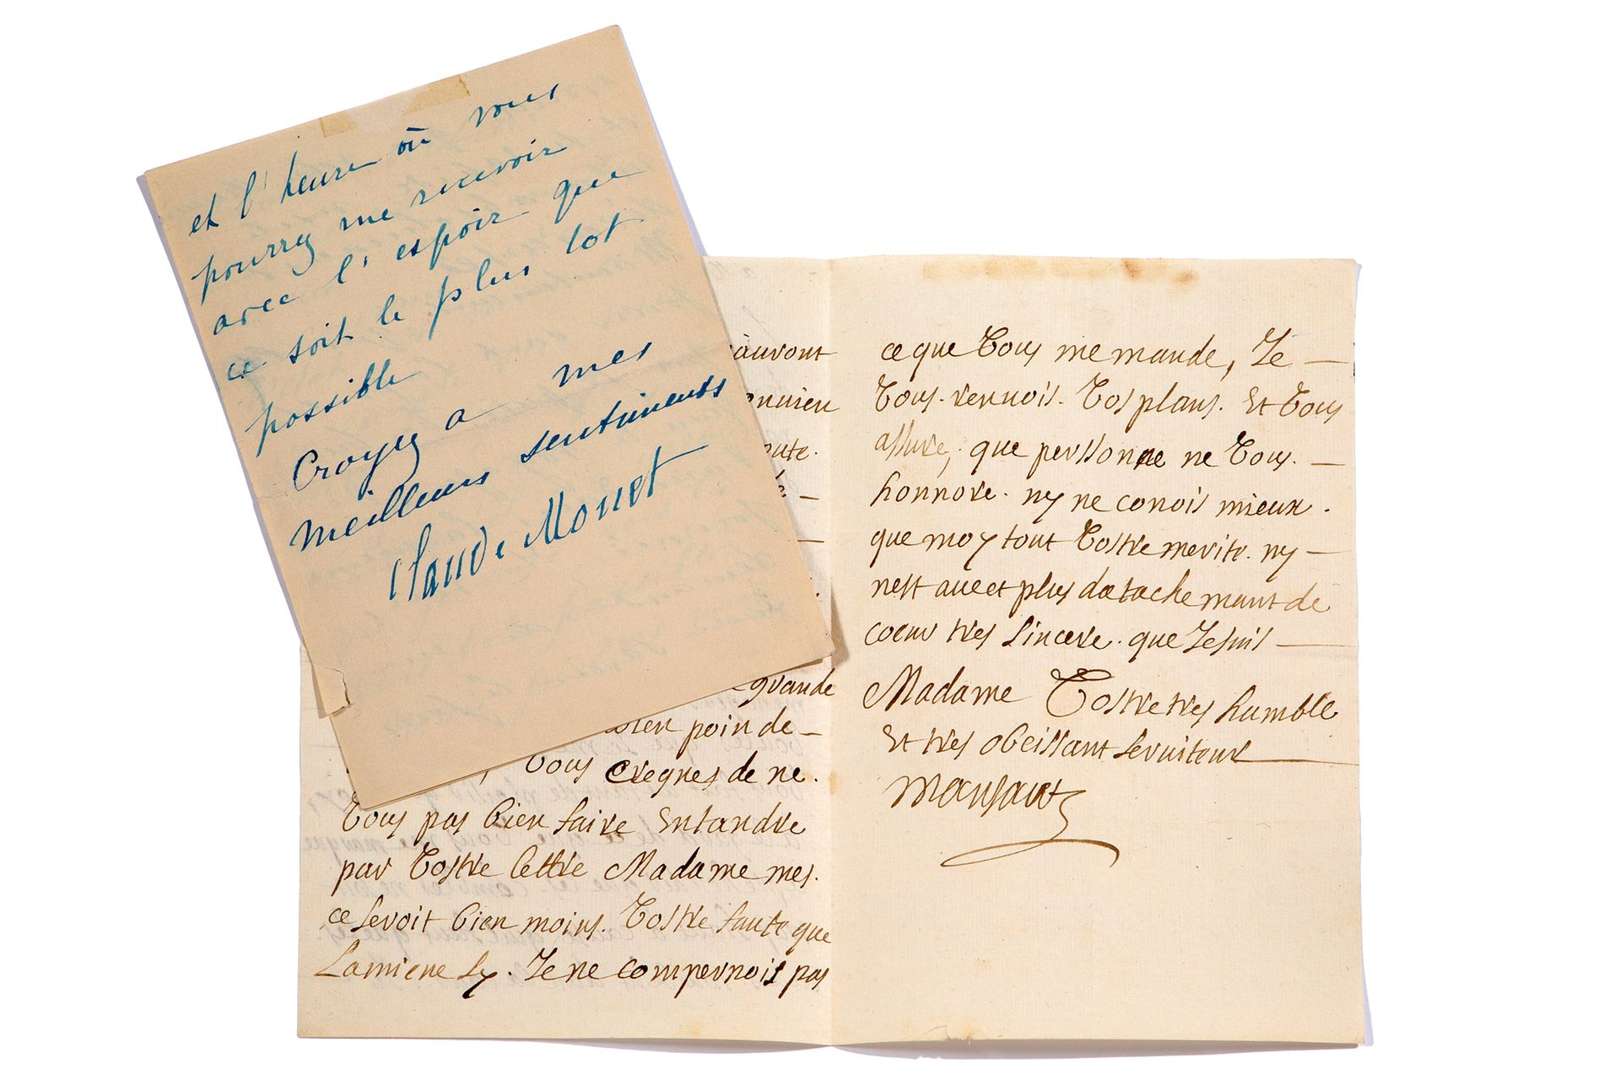 et l'heure où vous
pourrez me recevoir
avec l'espoir que
ce soit le plus tot
possible
Croyez a mes
meilleurs sentiments
Claude Monet
grande
bien poin de –
Vous cregnes de ne.
Vous pas bien faire Entandre
par Vostre lettre Madame mes.
ce seroit bien moins. Vostre faute que
Lamiene sy. Je ne compernois pas
ce que Vous me mande, Je —
Vous. renvois. Vos plans. Et Vous
assure, que perssonne ne Vous. —
honnore. ny ne conois mieux.
que moy tout Vostre merite. ny —
nest avect plus datachemant de
coeur tres sincere. que Jesuis —
Madame Vostre tres humble
Et tres obeissant serviteur
Mansart